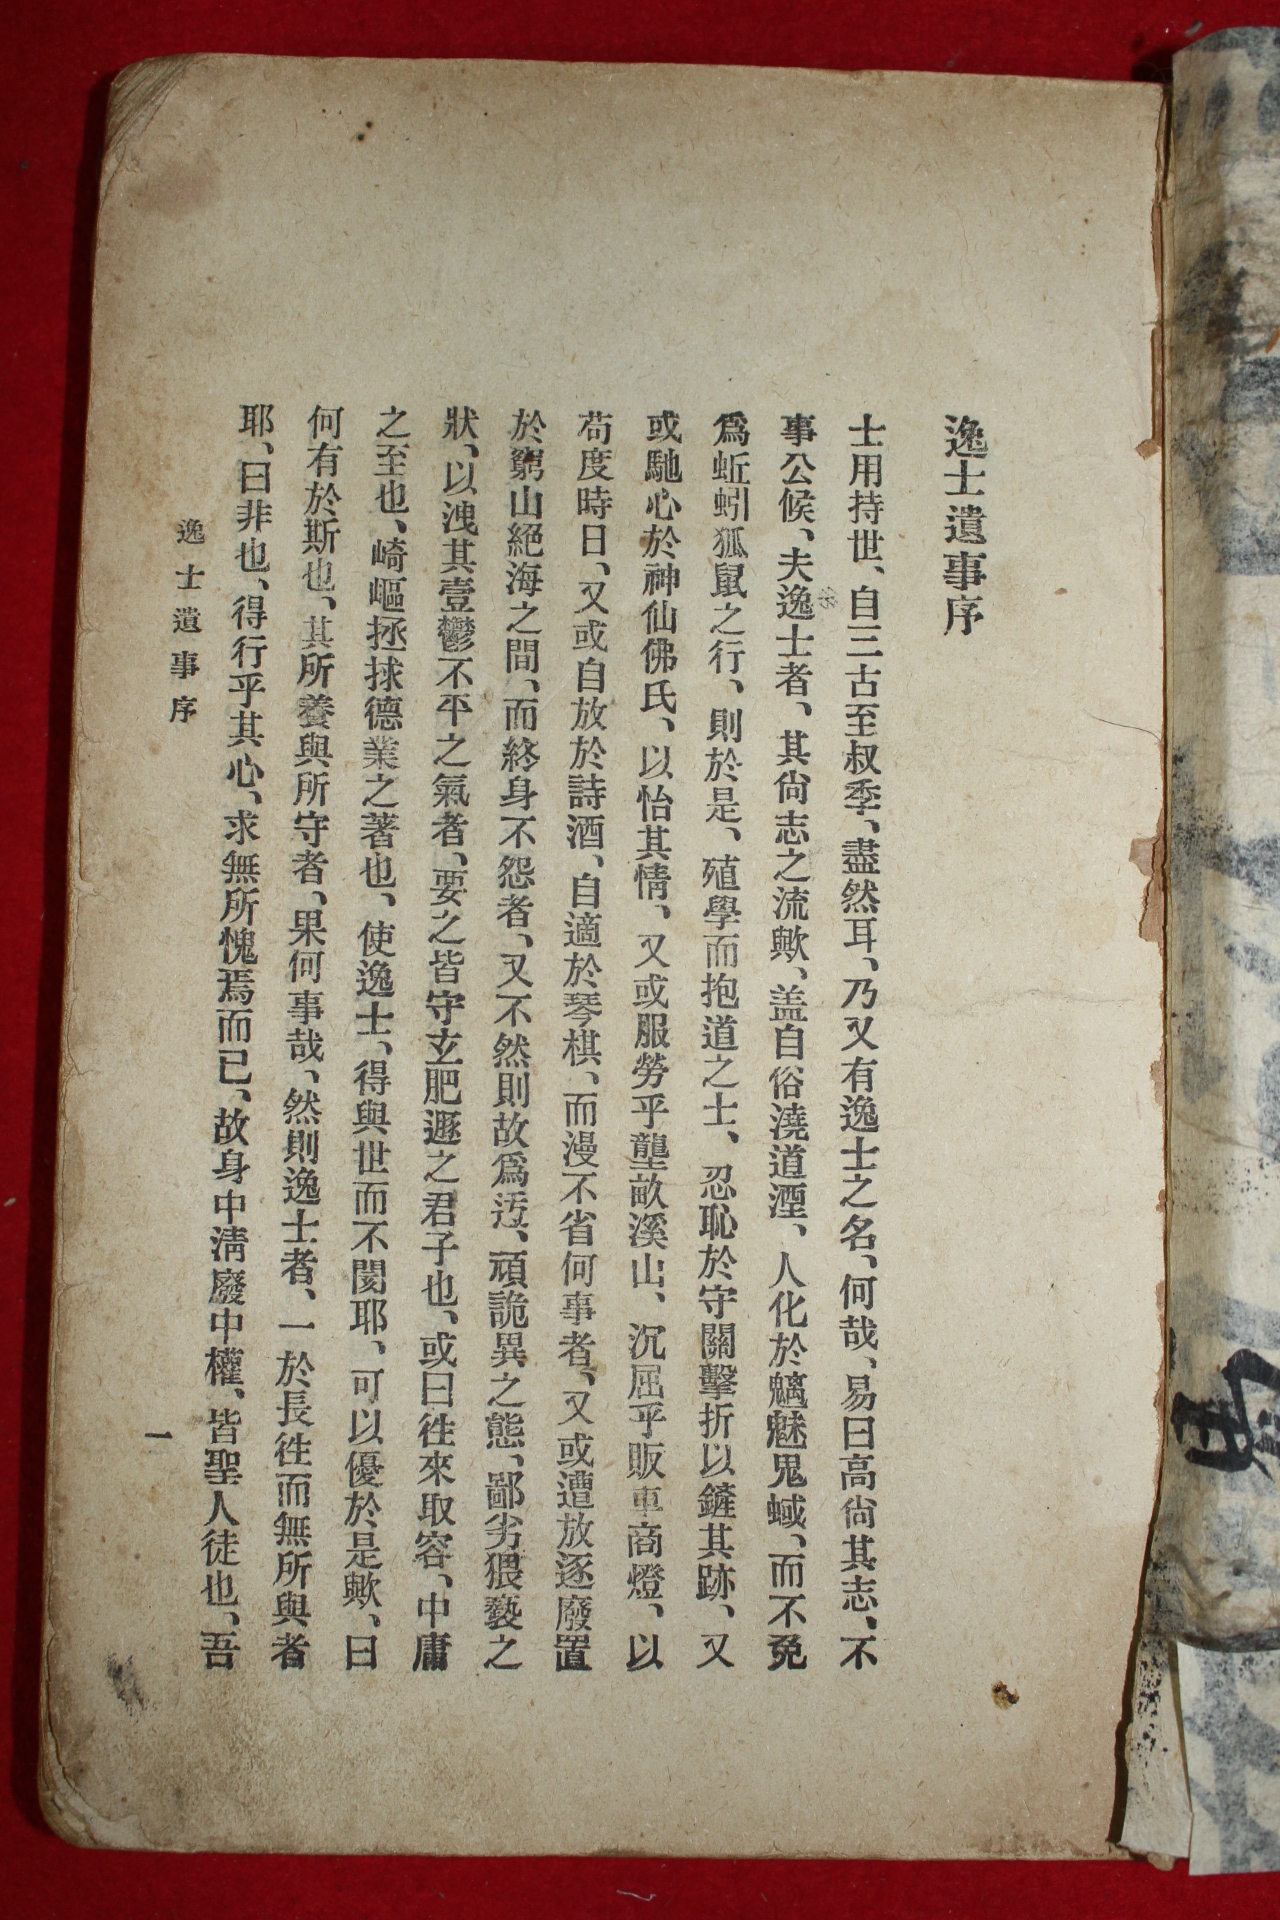 逸士遺事序
士用持世、自三古至叔季、盡然耳、乃又有逸士之名、何哉、易曰高尙其志、不
事公候、夫逸士者、其尙志之流歟、盖自俗澆道湮、人化於魑魅鬼蜮、而不免
爲蚯蚓狐鼠之行、則於是、殖學而抱道之士、忍恥於守關擊折以鏟其跡、又
或馳心於神仙佛氏、以怡其情、又或服勞乎壟畝溪山、沉屈乎販車商燈、以
苟度時日、又或自放於詩酒、自適於琴棋、而漫不省何事者、又或遭放逐廢置
於窮山絕海之間、而終身不怨者、又不然則故爲汚、頑詭異之態、鄙劣猥褻之
狀、以洩其壹鬱不平之氣者、要之皆守玄肥遯之君子也、或曰徃來取容、中庸
之至也、崎嶇拯捄德業之著也、使逸士、得與世而不閔耶、可以優於是歟、曰
何有於斯也、其所養與所守者、果何事哉、然則逸士者、一於長徃而無所與者
耶、曰非也、得行乎其心、求無所愧焉而已、故身中淸廢中權、皆聖人徒也、吾
逸士遺事序
一